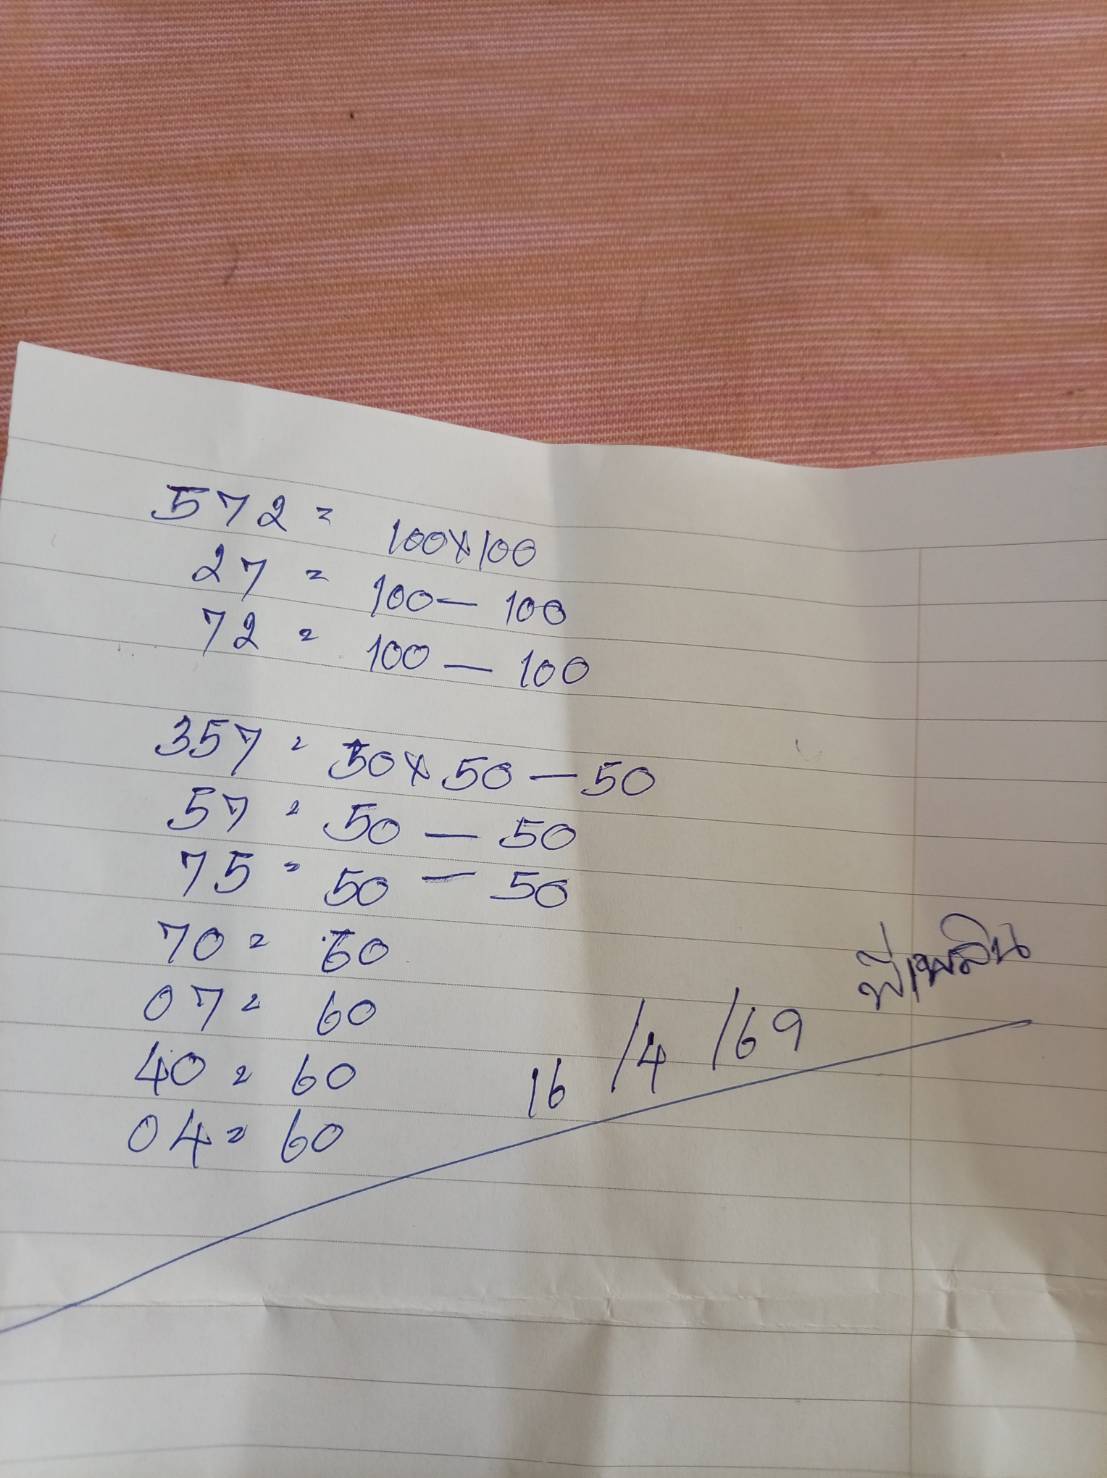 572 = 100×100
27 = 100 - 100
72 = 100 - 100
357 = 50×50 - 50
57 = 50 - 50
75 = 50 - 50
70 = 60
07 = 60
40 = 60
04 = 60
พี่เพลิน
16/4/69